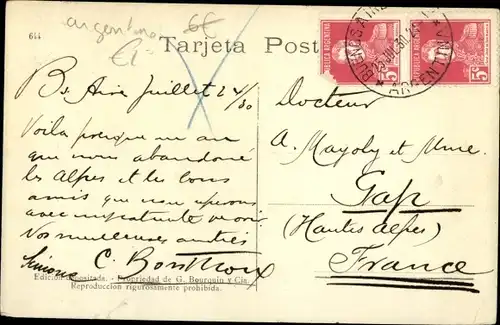 argentine 6€
644
€1-
Tarjeta Post
BUENOS AIRES
25 JUL 30
ARGENTINA
REPUBLICA ARGENTINA
5c
REPUBLICA ARGENTINA
5c
Bs Aires Juillet 24/30
Voila presque un an
que nous abandoné
les Alpes et les bons
amis que nous esperons
avec impatiente revoir.
Vos meilleures amitiés
Simone C. Bonthoux
Docteur
A. Mayoly et Mme.
Gap
(Hautes Alpes)
France
Edición depositada. - Propiedad de G. Bourquin y Cia.
Reproducción rigurosamente prohibida.